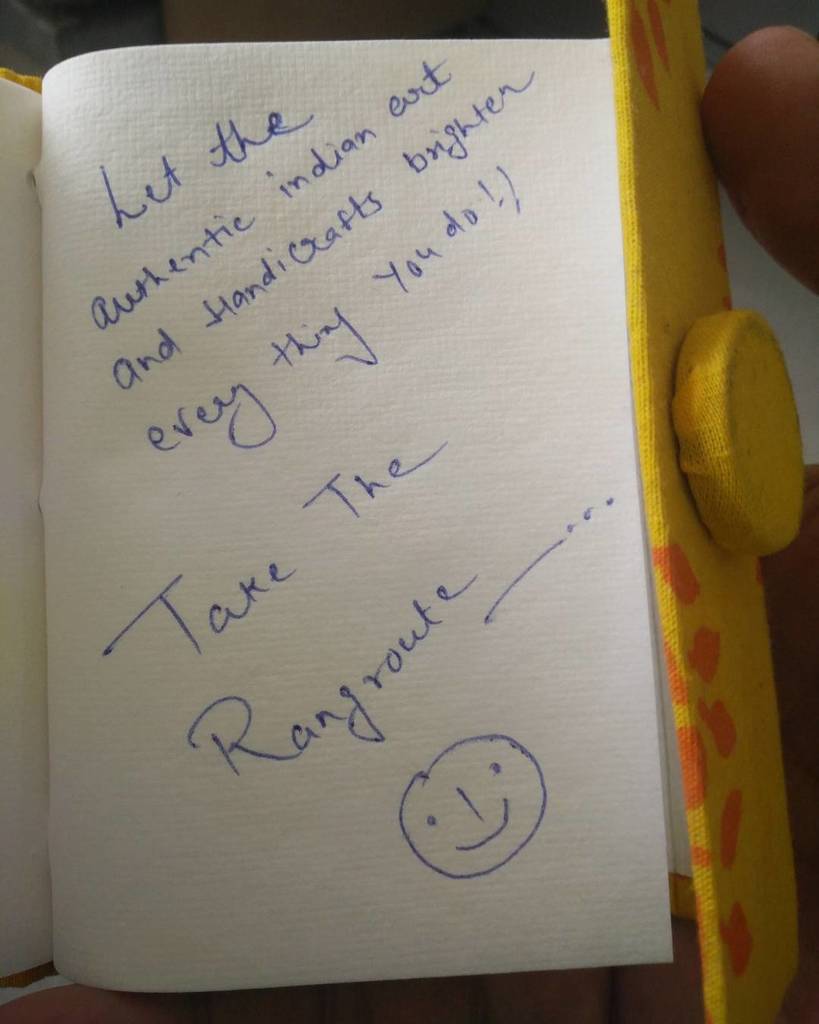 Let the
authentic indian art
and Handicrafts brighter
every thing you do!:)
Take The
Rangroute —...